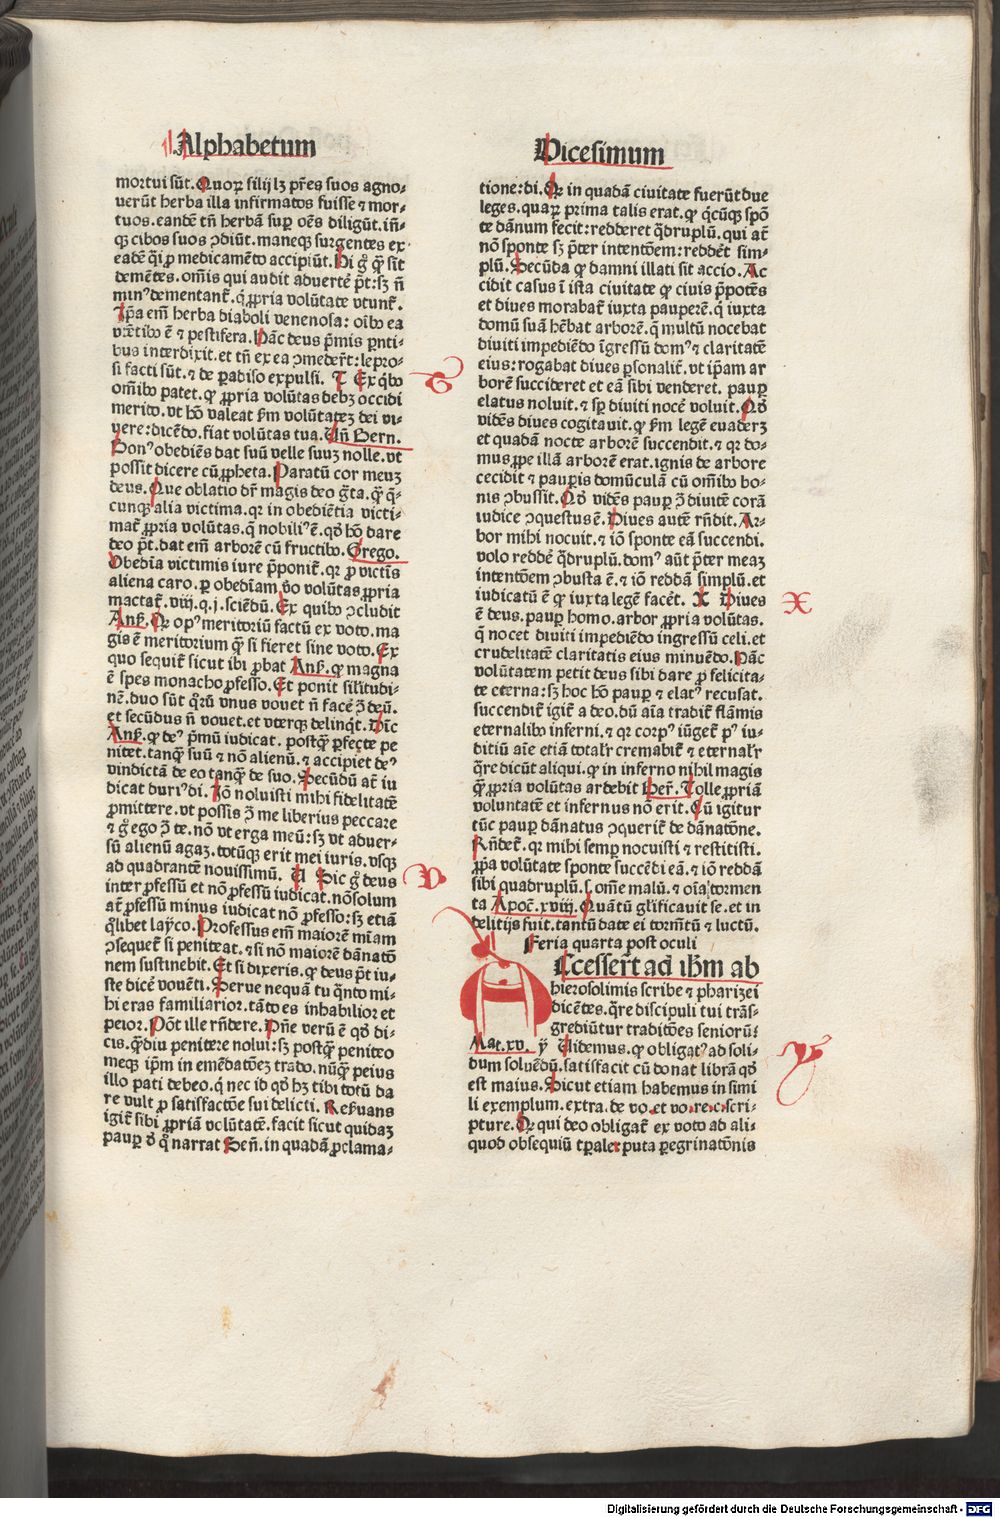 Alphabetum
mortui sūt. Quoꝝ filij lꝫ pr̄es suos agno⸗
uerūt herba illa infirmatos fuisse ⁊ mor⸗
tuos. eandē tn̄ herbā suꝑ oēs diligūt. iñ⸗
qꝫ cibos suos ↄdiūt. maneqꝫ surgentes ex
eadē q̄i ꝓ medicamēto accipiūt. Hi gͦ qꝙ̄ sīt
demētes. om̄is qui audit aduertē pt̄: sꝫ nō
minꝰ dementant᷑. q̄ ꝓpria volūtate vtunt᷑.
Ip̄a em̄ herba diaboli venenosa: oībꝰ ea
vtētibꝰ ē ⁊ pestifera. Hāc deus p̄mis pnti⸗
bus interdixit. et tn̄ ex ea ↄmeder̄t: lepro⸗
si facti sūt. ⁊ de ꝑadiso expulsi. T Ex qͥbꝰ
om̄ibꝰ patet. qꝙ ꝓpria volūtas debꝫ occidi
merito. vt bō valeat ẜm volūtatez dei vi⸗
uere: dicēdo. fiat volūtas tua. Uñ Bern.
Bonꝰ obediēs dat suū velle suuꝫ nolle. vt
possit dicere cū ꝓpheta. Paratū cor meuꝫ
deus. Que oblatio dr̄ magis deo gͣta. qꝙ̄ q̄⸗
cunqꝫ alia victima. qꝛ in obediētia victi⸗
mat᷑ ꝓpria volūtas. qͣ nobiliꝰ ē. qd̄ bō dare
deo pt̄. dat em̄ arborē cū fructibꝰ. Grego.
Obedīa victimis iure p̄ponit᷑. qꝛ ꝓ victīs
aliena caro. ꝑ obedīam ꝟo volūtas ꝓpria
mactat᷑. viij. q. j. sciēdū. Ex quibꝰ ↄcludit
Anß. Qꝛ opꝰ meritoriū factū ex voto. ma
gis ē meritorium qꝙ̄ si fieret sine voto. Ex
quo sequit᷑ sicut ibi ꝓbat Anß. qꝙ magna
ē spes monacho ꝓfesso. Et ponit sīlitudi⸗
nē. duo sūt qͦꝝ vnus vouet n̄ facē ↄ̄ deū.
et secūdus n̄ vouet. et vterqꝫ delinqͥt. Hic
Anß. qꝙ deꝰ p̄mū iudicat. postqꝙ̄ ꝑfecte pe
nitet. tanqꝙ̄ suū ⁊ nō alienū. ⁊ accipiet deꝰ
vindictā de eo tanqꝙ̄ de suo. Secūdū at̄ iu
dicat duriꝰ. di. Tō noluisti mihi fidelitatē
ꝓmittere. vt possis ↄ̄ me liberius peccare
⁊ gͦ ego ↄ̄ te. nō vt erga meū: sꝫ vt aduer⸗
sū alienū agaꝫ. totūqꝫ erit mei iuris. vsqꝫ
ad quadrantē nouissimū. V Sic gͦ deus
inter ꝓfessū et nō ꝓfessū iudicat. nō solum
at̄ ꝓfessū minus iudicat nō ꝓfesso: sꝫ etiā
qͦlibet layco. Professus em̄ maiorē mīam
ↄsequet᷑ si peniteat. ⁊ si nō maiorē dānatō
nem sustinebit. Et si dixeris. qꝙ deus pt̄ iu⸗
ste dicē vouēti. Serue nequā tu qͣnto mi⸗
hi eras familiarior. tāto es inhabilior et
peior. Pōt ille rn̄dere. Dn̄e verū ē qd̄ di⸗
cis. qꝙ̄diu penitere nolui: sꝫ postqꝙ̄ peniteo
meqꝫ ip̄m in emēdatōeꝫ trado. nūqꝙ̄ peius
illo pati debeo. q̄ nec id qd̄ hꝫ tibi totū da
re vult ꝓ satisfactōe sui delicti. Reßuans
igit᷑ sibi ꝓpriā volūtatē. facit sicut quidaꝫ
pauꝑ ↄ̄ qͦ narrat Sen̄. in quadā ꝓclama⸗
T
V
Vicesimum
tione: di. Qꝛ in quadā ciuitate fuerūt due
leges. quaꝝ prima talis erat. qꝙ qͥcūqꝫ spō
te dānum fecit: redderet qͣdruplū. qui at̄
nō sponte sꝫ p̄ter intentōem: reddēt sim⸗
plū. Secūda qꝙ damni illati sit accio. Ac
cidit casus ī ista ciuitate qꝙ ciuis p̄potēs
et diues morabat᷑ iuxta pauperē. qͥ iuxta
domū suā hēbat arborē. q̄ multū nocebat
diuiti impediēdo īgressū domꝰ ⁊ claritatē
eius: rogabat diues ꝑsonalit᷑. vt ip̄am ar
borē succideret et eā sibi venderet. pauꝑ
elatus noluit. ⁊ sꝑ diuiti nocē voluit. Qd̄
vidēs diues cogitauit. qꝙ ẜm legē euaderꝫ
et quadā nocte arborē succendit. ⁊ qꝛ do⸗
mus ꝓpe illā arborē erat. ignis de arbore
cecidit ⁊ pauꝑis domūculā cū om̄ibꝰ bo⸗
nis ↄbussit. Qd̄ vidēs pauꝑ ↄ̄ diuitē corā
iudice ↄquestus ē. Diues autē rn̄dit. Ar⸗
bor mihi nocuit. ⁊ iō sponte eā succendi.
volo reddē qͣdruplū. domꝰ aūt p̄ter meaꝫ
intentōem ↄbusta ē. ⁊ iō reddā simplū. et
iudicatū ē qꝙ iuxta legē facēt. X Diues
ē deus. pauꝑ homo. arbor ꝓpria volūtas.
q̄ nocet diuiti impediēdo ingressū celi. et
crudelitatē claritatis eius minuēdo. Hāc
volūtatem petit deus sibi dare ꝓ felicita⸗
te eterna: sꝫ hoc hō pauꝑ ⁊ elatꝰ recusat.
succendit᷑ igit᷑ a deo. dū aīa tradit᷑ flāmis
eternalibꝰ inferni. ⁊ qꝛ corpꝰ iūget᷑ pꝰ iu⸗
ditiū aīe etiā totalr̄ cremabit᷑ ⁊ eternalr̄
q̄re dicūt aliqui. qꝙ in inferno nihil magis
qꝙ̄ ꝓpria volūtas ardebit Ber̄. Tolle ꝓpriā
voluntatē et infernus nō erit. Cū igitur
tūc pauꝑ dānatus ↄquerit᷑ de dānatōne.
Rn̄det᷑. qꝛ mihi semꝑ nocuisti ⁊ restitisti.
ꝓpͥa volūtate sponte succēdi eā. ⁊ iō reddā
sibi quadruplū. s. om̄e malū. ⁊ oīa tormen
ta Apoc̄. xviij. Quātū gl̄ificauit se. et in
delitijs fuit. tantū date ei tormētū ⁊ luctū.
Feria quarta post oculi
Accesserūt ad ih̄m ab
hierosolimis scribe ⁊ pharizei
dicētes. q̄re discipuli tui trās⸗
grediūtur traditōes seniorū:
Mat. xv. ÿ Uidemus. qꝙ obligatꝰ ad soli⸗
dum soluēdū. satisfacit cū donat librā qd̄
est maius. Sicut etiam habemus in simi
li exemplum. extra. de vo. et vo. re. c. scri⸗
pture. Qꝛ qui deo obligat᷑ ex voto ad ali⸗
quod obsequiū tꝑale: puta ꝑegrinatōnis
X
Y
Digitalisierung gefördert durch die Deutsche Forschungsgemeinschaft - DFG